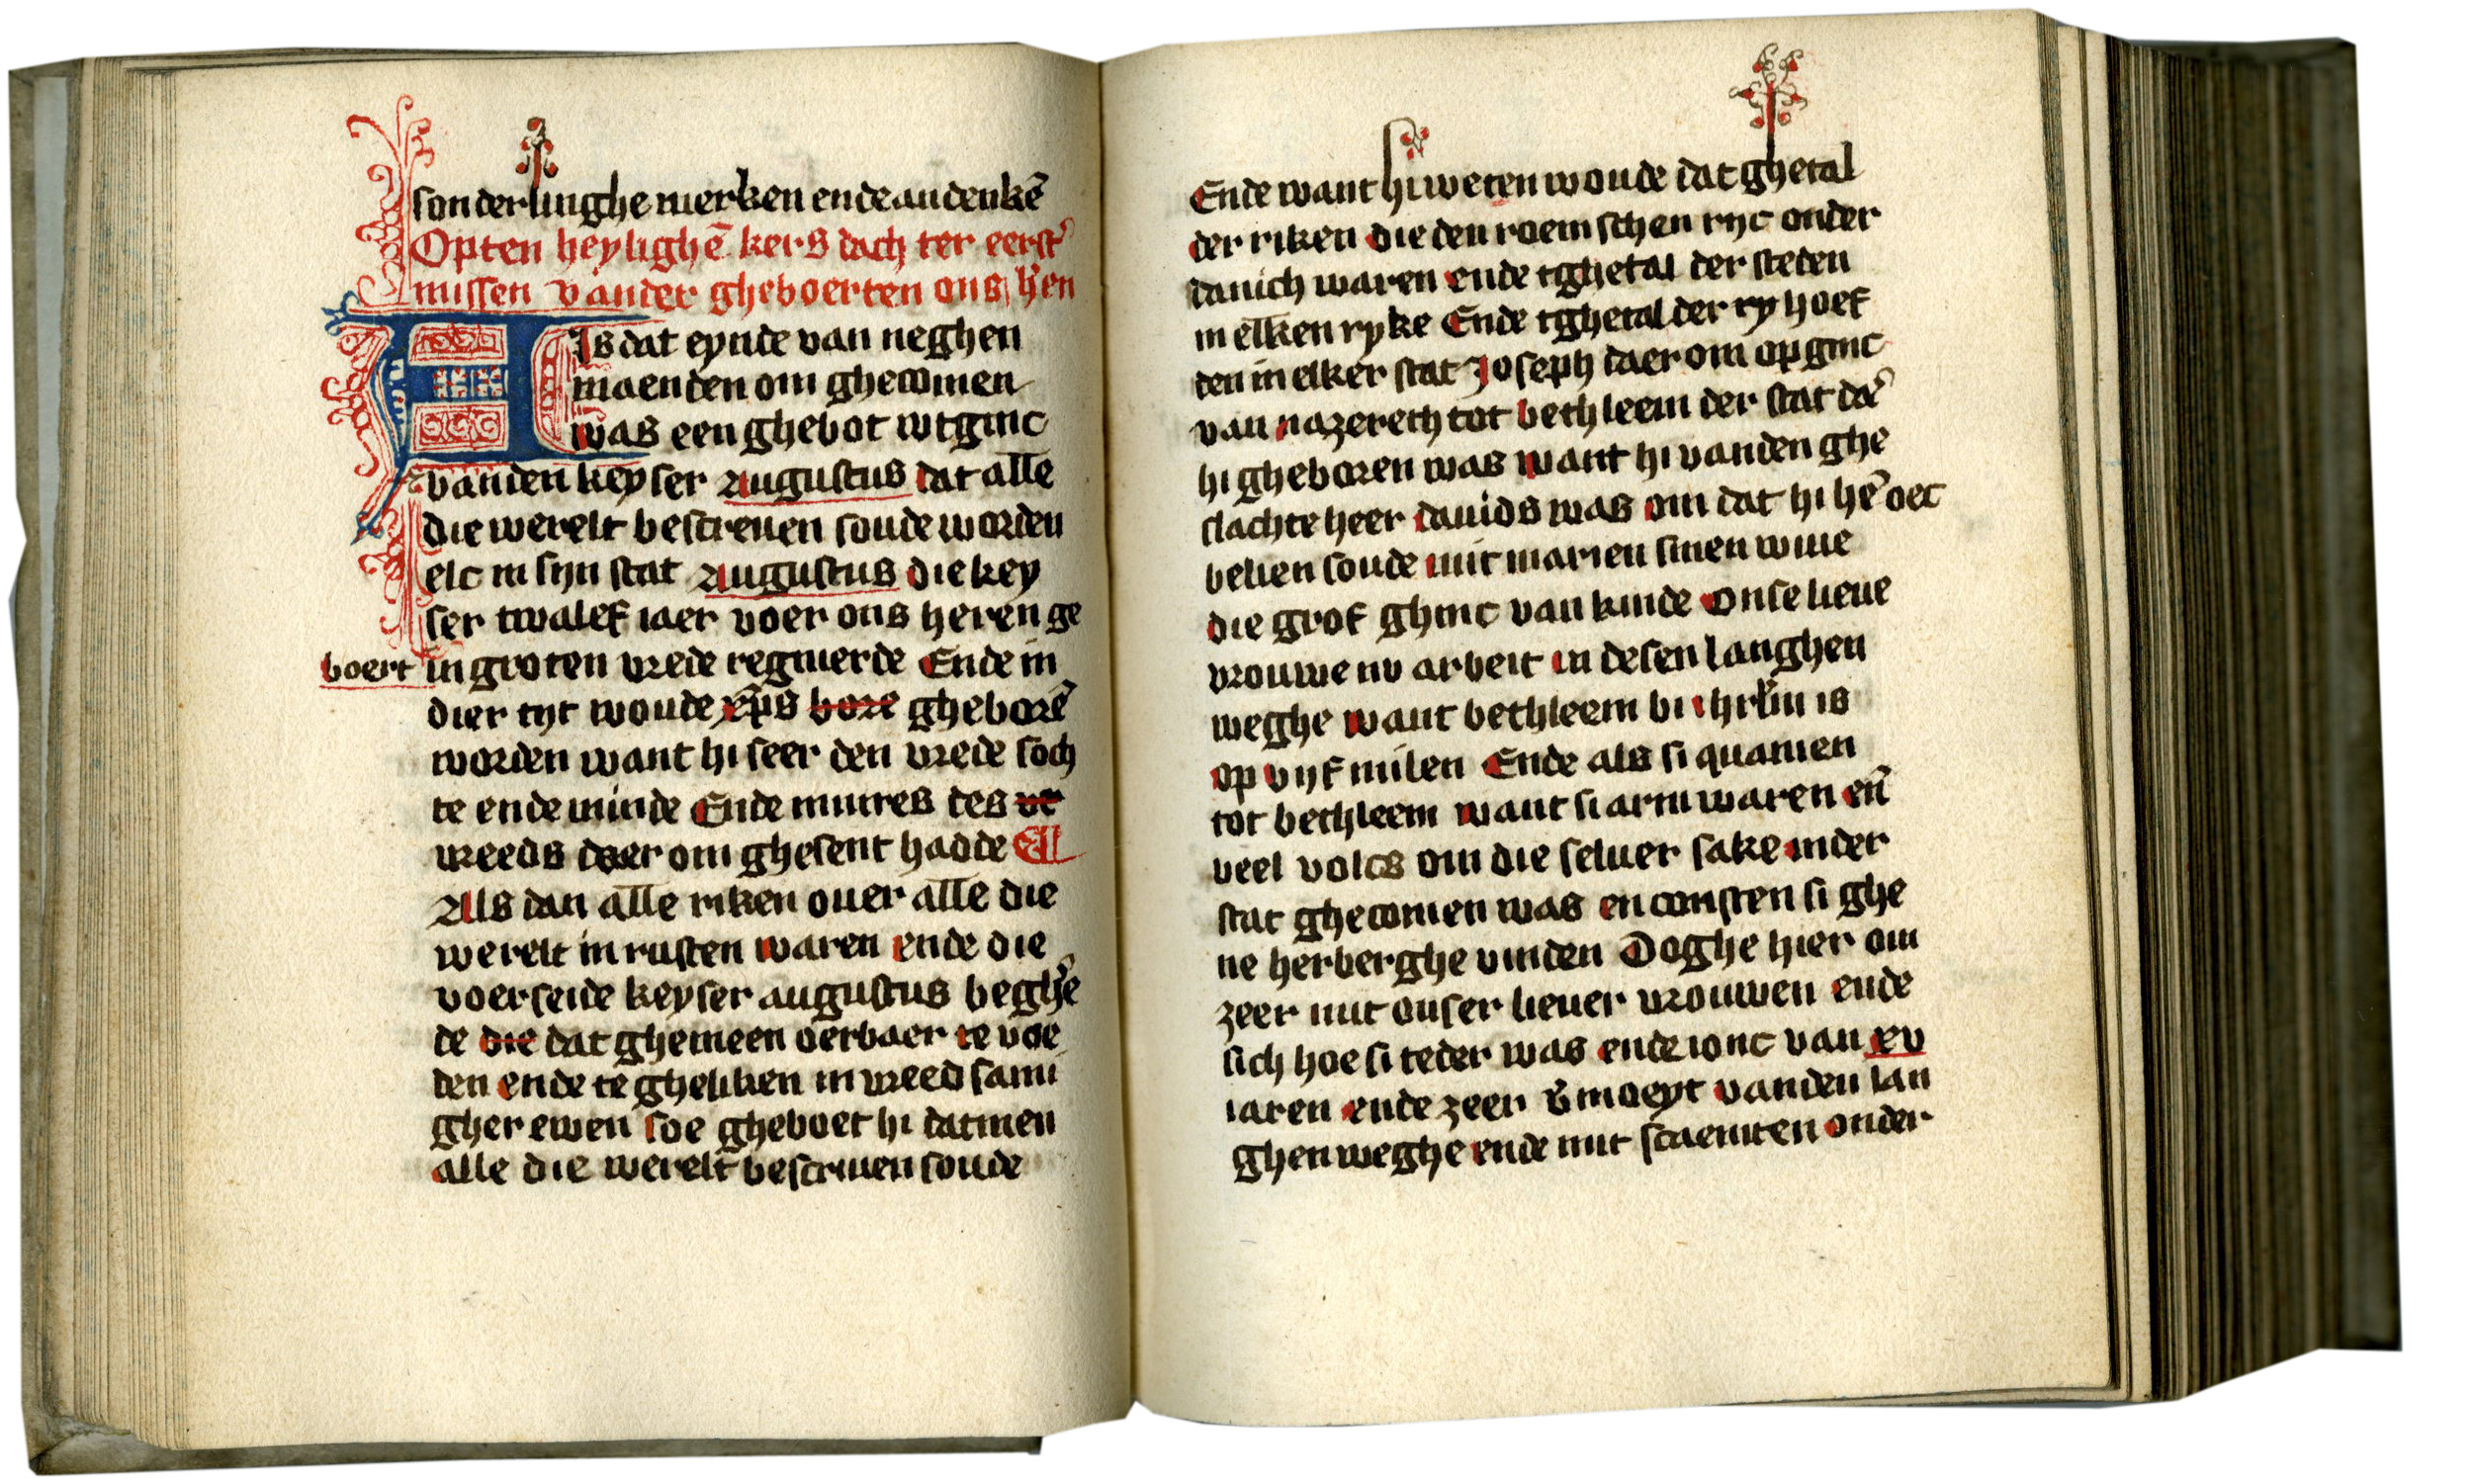 sonderlinghe merken ende andenkē
Opten heylighē kers dach ter eerst'
missen vander gheboerten ons h'en
Als dat eynde van neghen
maenden om ghecomen
was een ghebot wtginc
vanden keyser augustus dat alle
die werelt bescreuen soude worden
elc in sijn stat augustus die key
ser twalef iaer voer ons heren ge
boert in groten vrede regnierde Ende in
dier tijt woude xp̄s bore gheborē
worden want hi seer den vrede soch
te ende minde Ende mitres des vr
vreeds daer om ghesent hadde
Als dan alle riken ouer alle die
werelt in rusten waren ende die
voerseide keyser augustus begh'e
de die dat ghemeen oerbaer te voe
den ende te gheliken in vreedsami
gher ewen soe gheboet hi datmen
alle die werelt bescriuen soude
Ende want hi weten woude dat ghetal
der riken die den roemschen rijc onder
danich waren ende tghetal der steden
in elken ryke Ende tghetal der ry hoef
den in elker stat Joseph daer om op ginc
van nazereth tot bethleem der stat daer'
hi gheboren was want hi vanden ghe
slachte heer dauids was om dat hi hē oec
belien soude mit marien sinen wiue
die grof ghinc van kinde onse lieue
vrouwe nv arbeit in desen langhen
weghe want bethleem bi ihrl'm is
op vijf milen Ende als si quamen
tot bethleem want si arm waren eñ
veel volcs om die seluer sake inder
stat ghecomen was en consten si ghe
ne herberghe vinden Doghe hier om
zeer mit onser lieuer vrouwen ende
sich hoe si teder was ende ionc van xv
iaren ende zeer v'moeyt vanden lan
ghen weghe ende mit scaemten onder